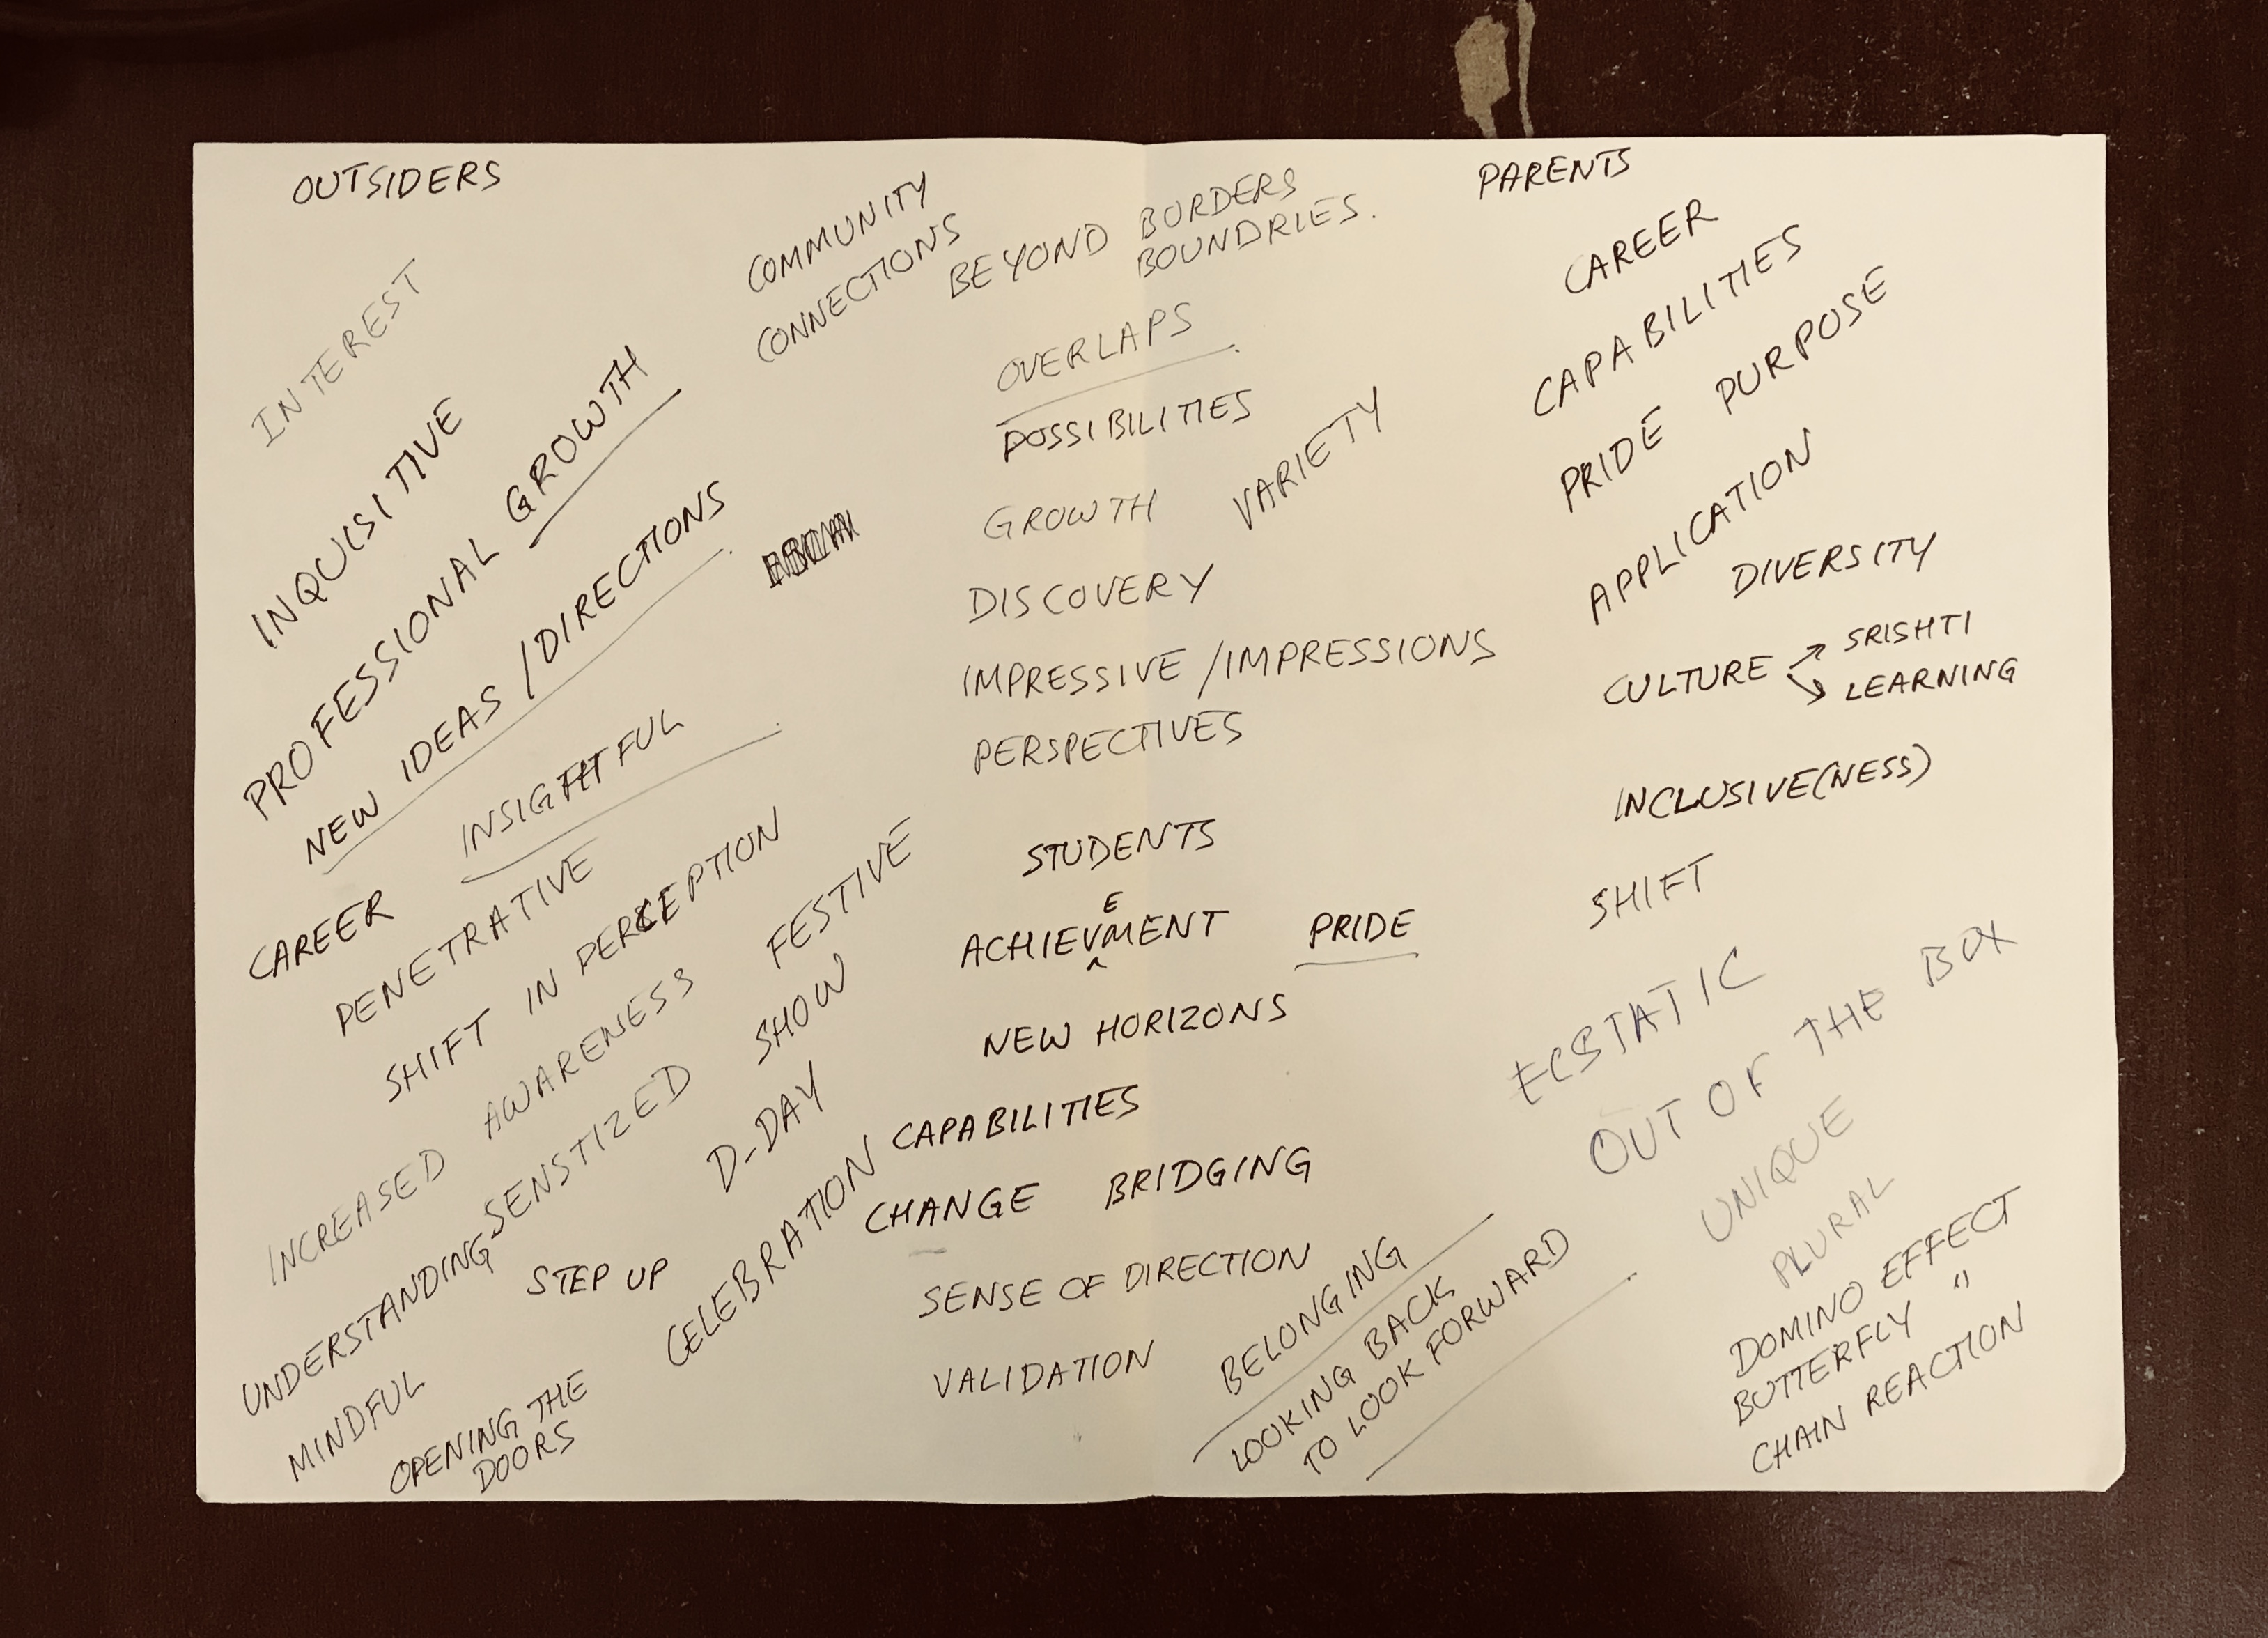 OUTSIDERS
INTEREST
INQUISITIVE
PROFESSIONAL GROWTH
NEW IDEAS / DIRECTIONS
INSIGHTFUL
CAREER
PENETRATIVE
SHIFT IN PERCEPTION
INCREASED AWARENESS
SENSTIZED
UNDERSTANDING
MINDFUL
OPENING THE
DOORS
STEP UP
FESTIVE
SHOW
D-DAY
CELEBRATION
COMMUNITY
CONNECTIONS
BEYOND BORDERS
BOUNDRIES.
OVERLAPS
POSSIBILITIES
VARIETY
GROWTH
DISCOVERY
IMPRESSIVE / IMPRESSIONS
PERSPECTIVES
STUDENTS
ACHIEVEMENT PRIDE
NEW HORIZONS
CAPABILITIES
CHANGE BRIDGING
SENSE OF DIRECTION
VALIDATION
BELONGING
LOOKING BACK
TO LOOK FORWARD
PARENTS
CAREER
CAPABILITIES
PRIDE PURPOSE
APPLICATION
DIVERSITY
CULTURE → SRISHTI
→ LEARNING
INCLUSIVE(NESS)
SHIFT
ECSTATIC
OUT OF THE BOX
UNIQUE
PLURAL
DOMINO EFFECT
BUTTERFLY "
CHAIN REACTION